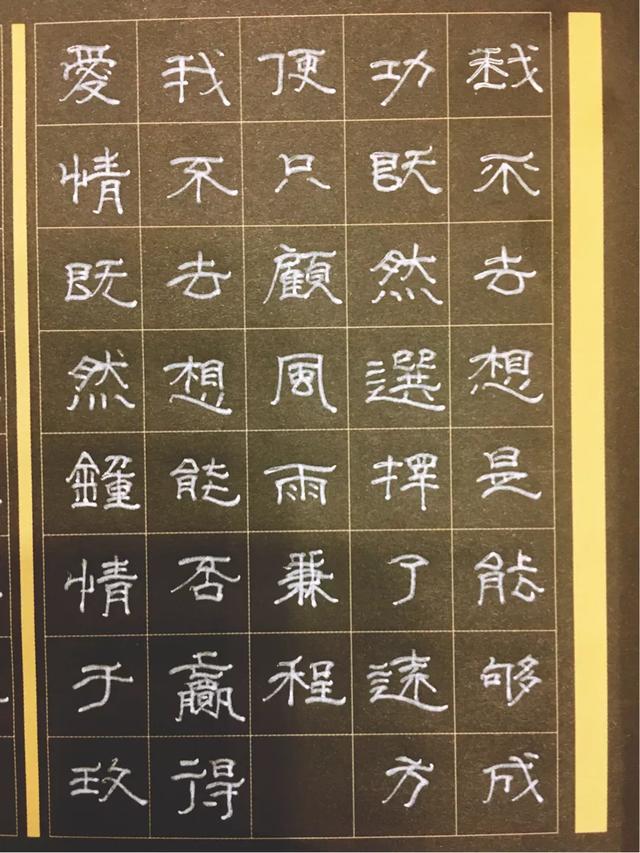 我不去想是能够成
功既然選擇了遠方
便只顧風雨兼程
我不去想能否贏得
愛情既然鍾情于玫